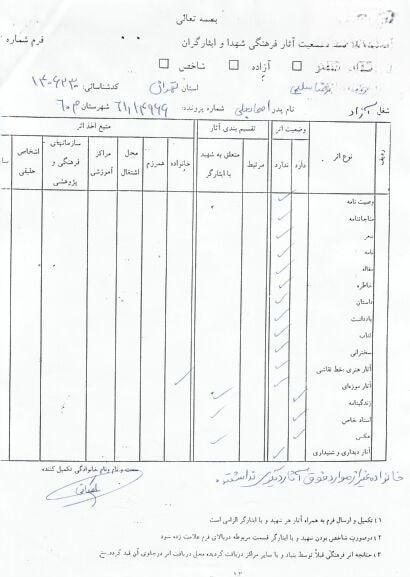 بسمه تعالی
وضعیت آثار فرهنگی شهدا و ایثارگران
فرم شماره
آزاده شاخص
استان تهران کدشناسائی:
شغل آزاد نام پدر شماره پرونده: شهرستان
ردیف نوع اثر وضعیت اثر تقسیم بندی آثار منبع اخذ اثر
دارد ندارد مرتبط متعلق به شهید یا ایثارگر خانواده همرزم محل اشتغال مراکز آموزشی سازمانهای فرهنگی و پژوهشی اشخاص حقیقی
وصیت نامه
مناجاتنامه
شعر
نامه
مقاله
خاطره
داستان
یادداشت
کتاب
سخنرانی
آثار هنری خط نقاشی
آثار موزه‌ای
زندگینامه
اسناد خاص
عکس
آثار دیداری و شنیداری
سمت و نام و نام خانوادگی تکمیل کننده
خانواده غیر از موارد فوق آثار دیگری نداشتند
۱) تکمیل و ارسال فرم به همراه آثار هر شهید و یا ایثارگر الزامی است
۲) درصورت شاخص بودن شهید و یا ایثارگر قسمت مربوطه دربالای فرم علامت زده شود
۳) چنانچه اثر فرهنگی قبلاً توسط بنیاد و یا سایر مراکز دریافت گردیده محل دریافت اثر درجلوی آن قید گردد.
۱۲